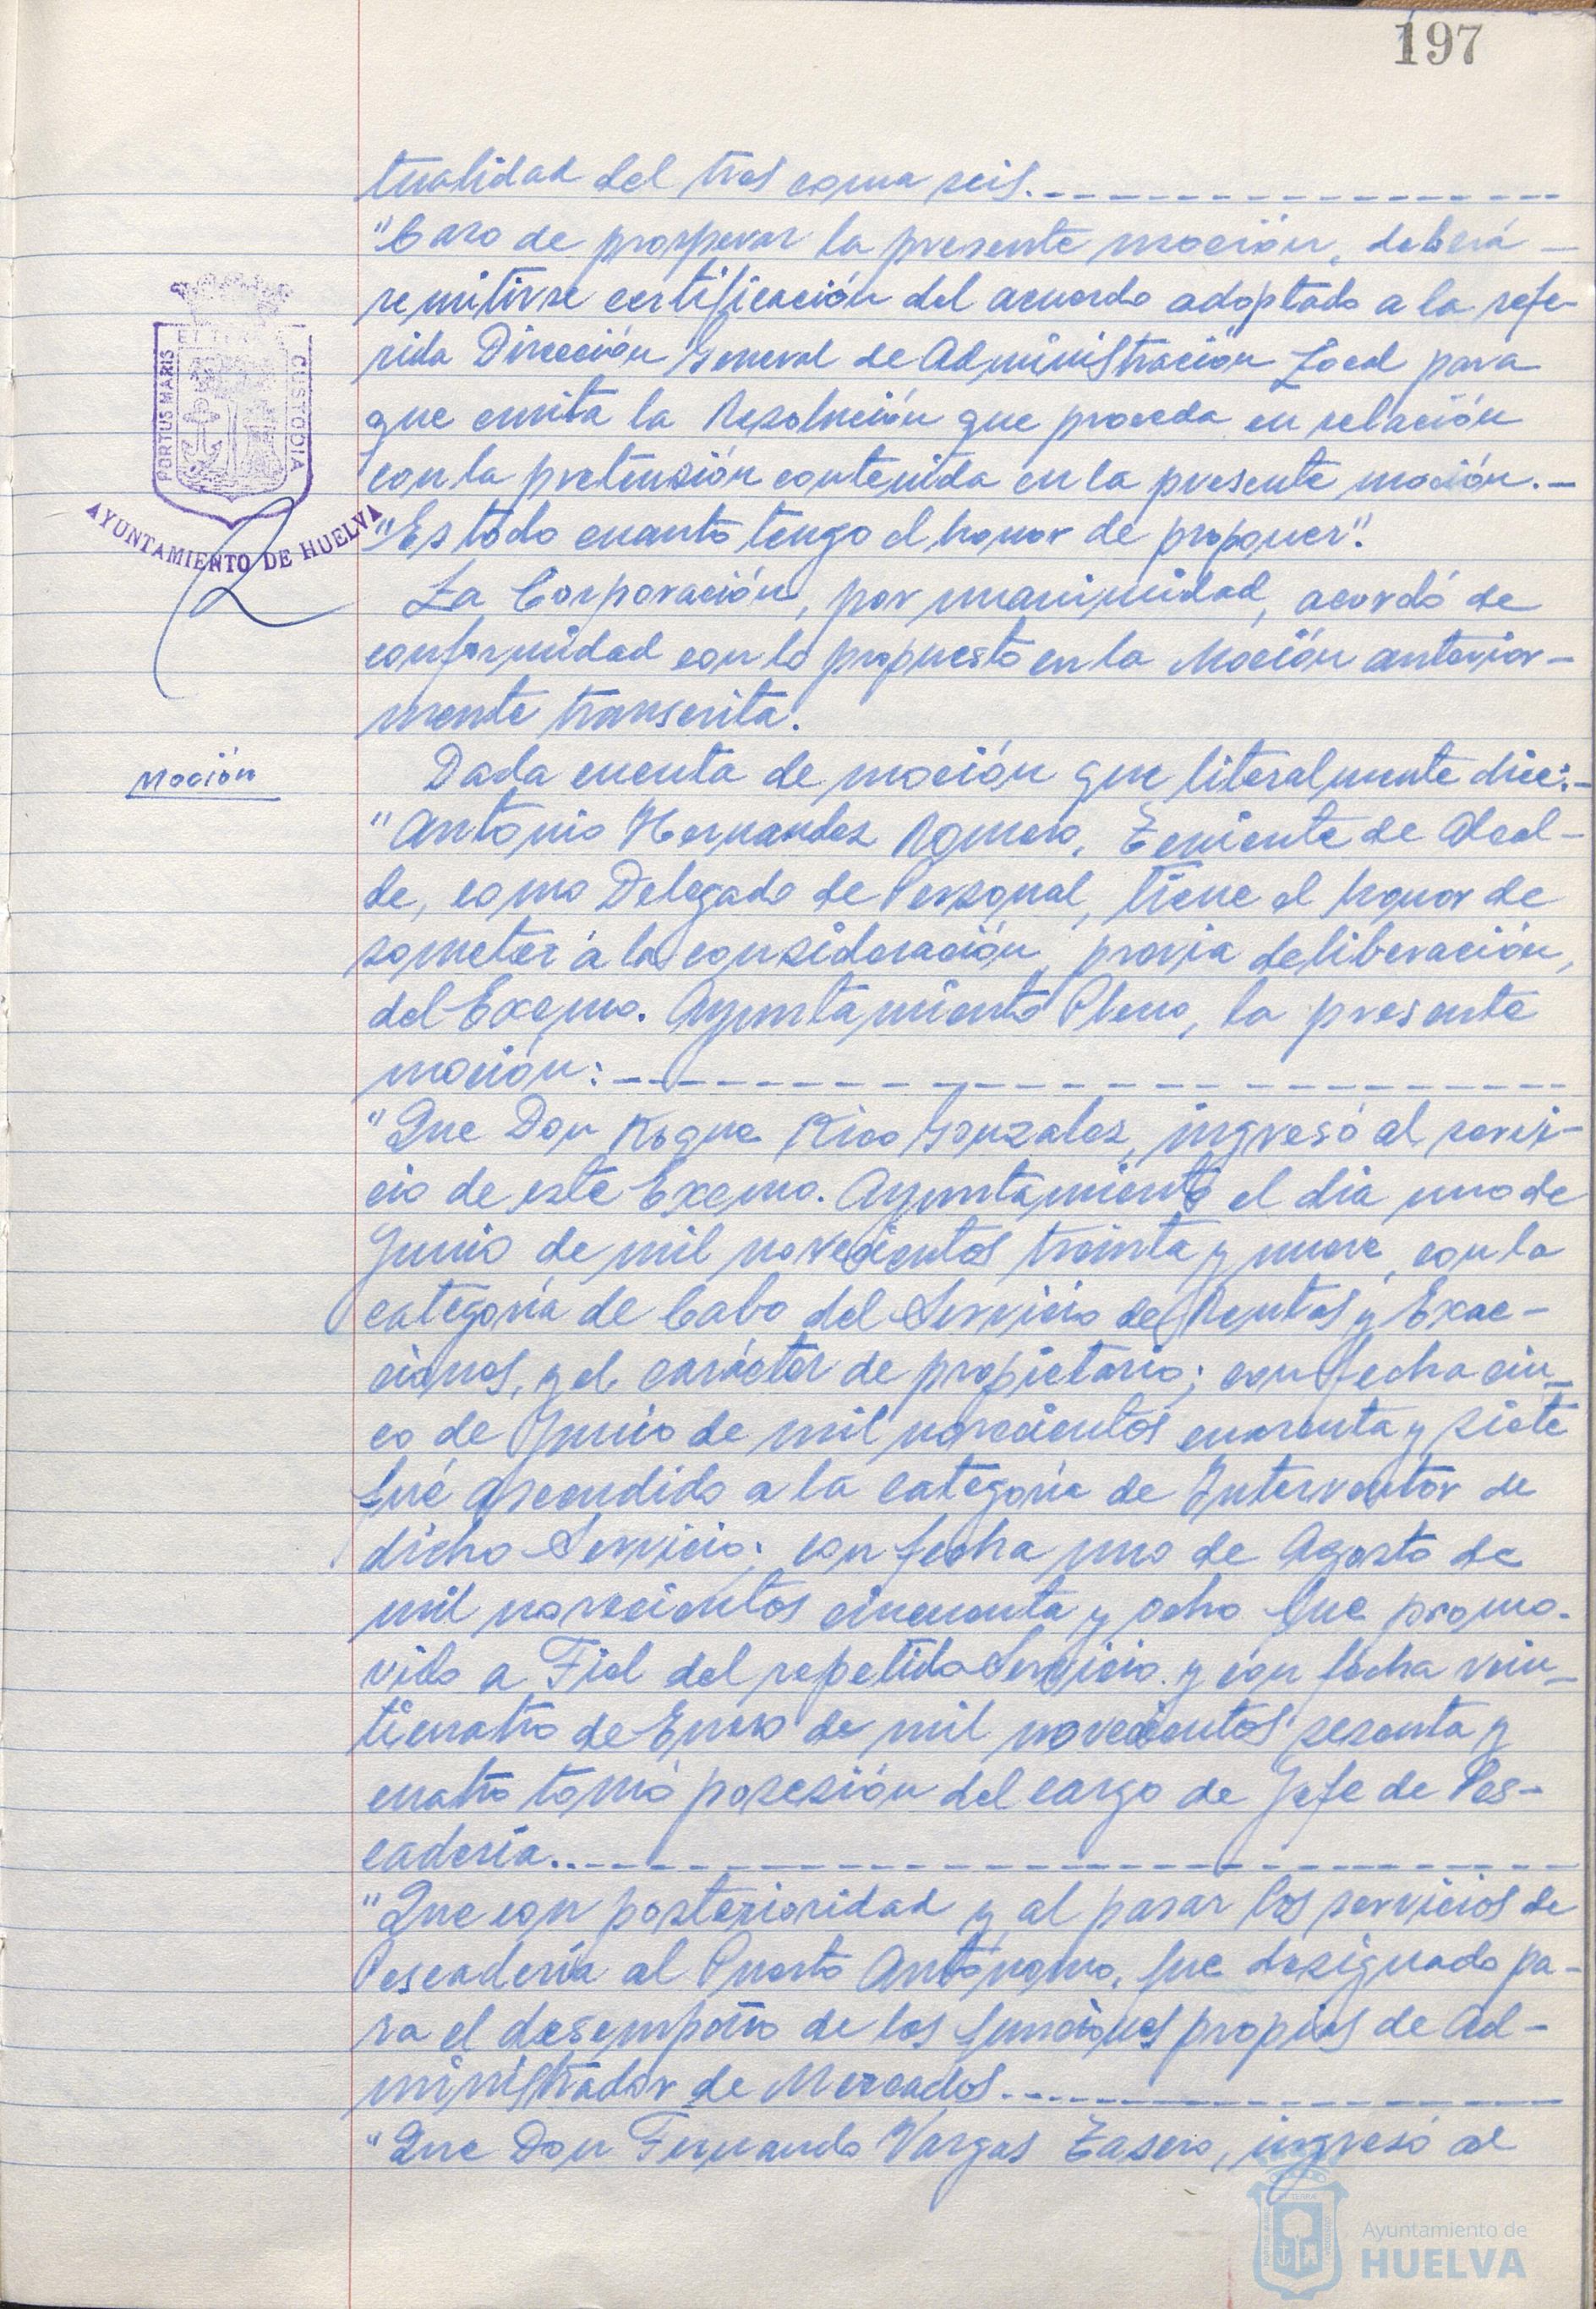 197
tualidad del tres coma seis.
"Caso de prosperar la presente moción, deberá
remitirse certificación del acuerdo adoptado a la refe-
rida Dirección General de Administración Local para
que emita la Resolución que proceda en relación
con la pretensión contenida en la presente moción.-
"Es todo cuanto tengo el honor de proponer".
PORTUS MARIS
ET TERRAE
CUSTODIA
AYUNTAMIENTO DE HUELVA
La Corporación, por unanimidad, acordó de
conformidad con lo propuesto en la Moción anterior-
mente transcrita.
Moción
Dada cuenta de moción que literalmente dice:-
"Antonio Hernandez Romero, Teniente de Alcal-
de, como Delegado de Personal, tiene el honor de
someter a la consideración, previa deliberación,
del Excmo. Ayuntamiento Pleno, la presente
moción:
"Que Don Roque Rico Gonzalez, ingresó al servi-
cio de este Excmo. Ayuntamiento el dia uno de
Junio de mil novecientos treinta y nueve, con la
categoría de Cabo del Servicio de Rentas y Exac-
ciones, y el carácter de propietario; con fecha cin-
co de Junio de mil novecientos cuarenta y siete
fué ascendido a la categoría de Interventor de
dicho Servicio; con fecha uno de Agosto de
mil novecientos cincuenta y ocho fue promo-
vido a Fiel del repetido Servicio y con fecha vein-
ticuatro de Enero de mil novecientos sesenta y
cuatro tomó posesión del cargo de Jefe de Pes-
cadería.
"Que con posterioridad y al pasar los servicios de
Pescadería al Puerto Autónomo, fue designado pa-
ra el desempeño de las funciones propias de Ad-
ministrador de Mercados.
"Que Don Fernando Vargas Tasero, ingresó al
Ayuntamiento de
HUELVA